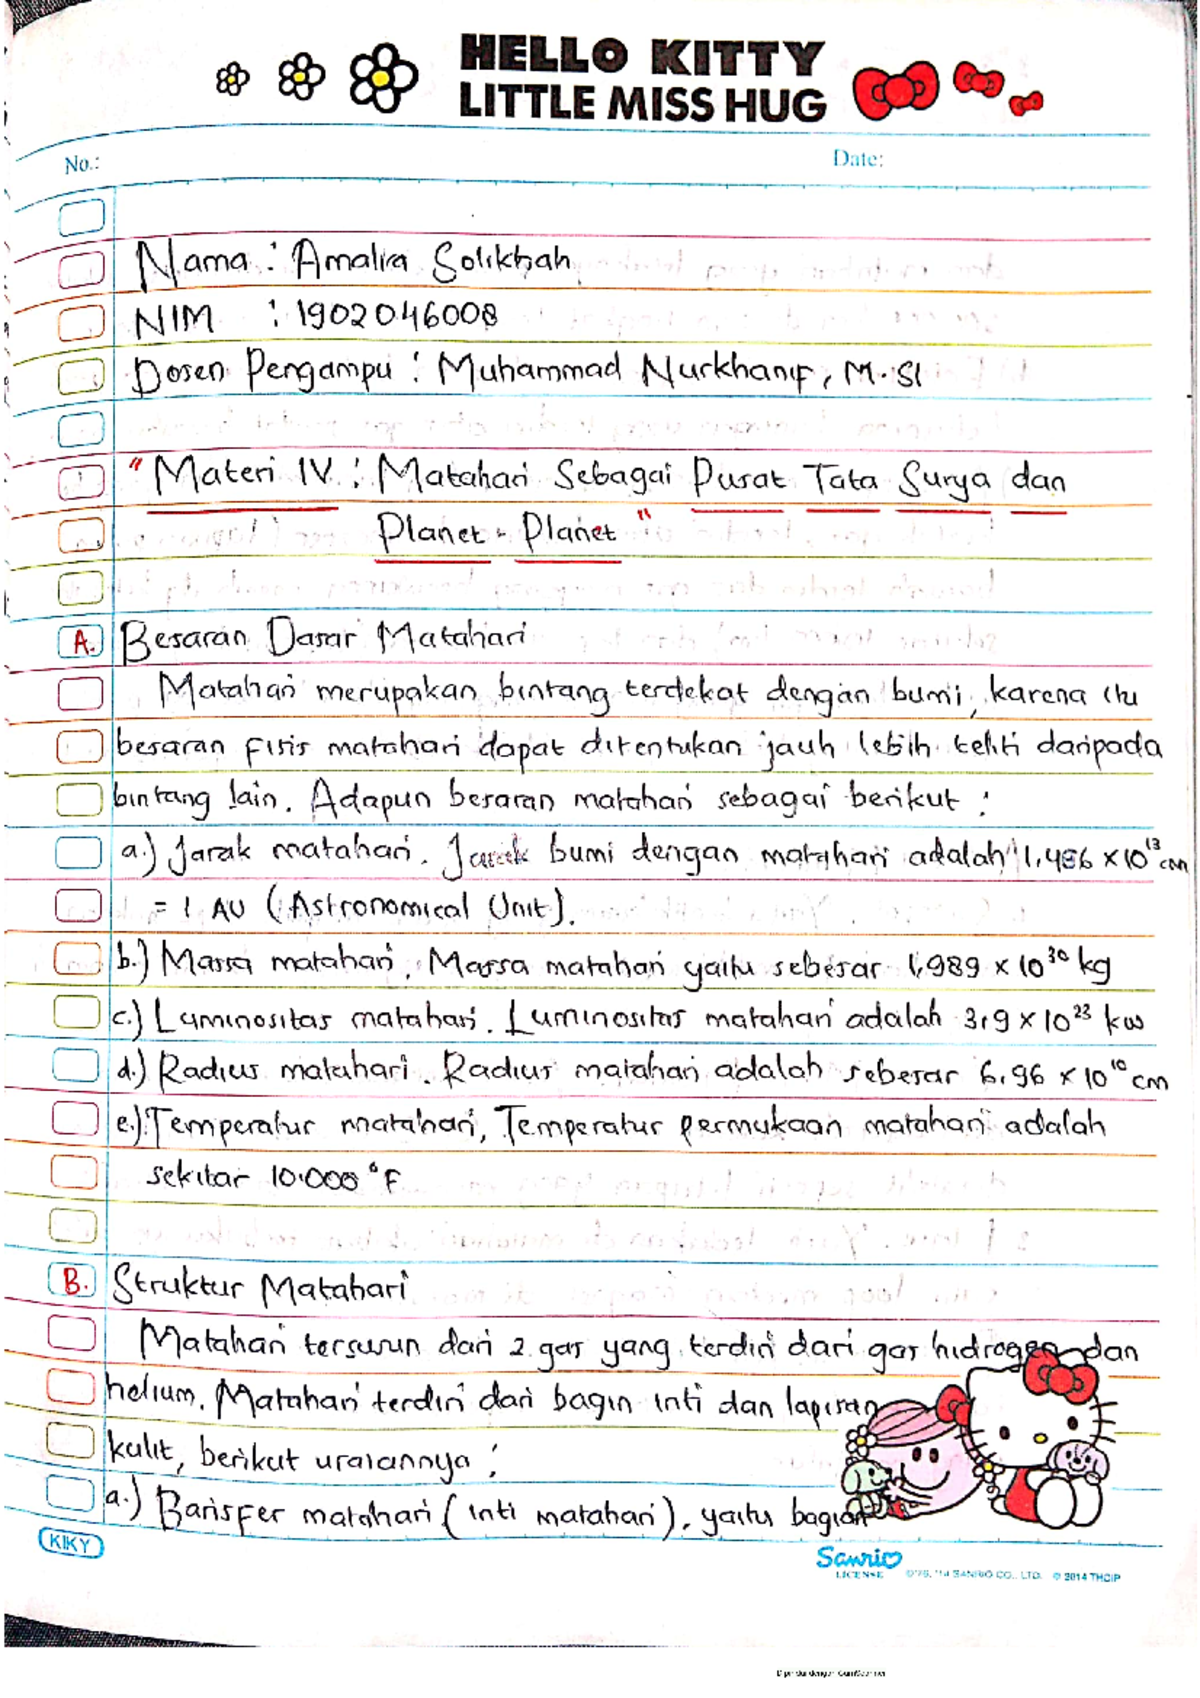 HELLO KITTY
LITTLE MISS HUG
No.:
Date:
Nama : Amalia Solikhah
NIM : 1902046008
Dosen Pengampu : Muhammad Nurkhanif, M.SI
"Materi IV : Matahari Sebagai Pusat Tata Surya dan
Planet - Planet"
A. Besaran Dasar Matahari
Matahari merupakan bintang terdekat dengan bumi, karena itu
besaran fisis matahari dapat ditentukan jauh lebih teliti daripada
bintang lain. Adapun besaran matahari sebagai berikut :
a.) Jarak matahari. Jarak bumi dengan matahari adalah 1,486 x 10¹³ cm
= 1 AU (Astronomical Unit).
b.) Massa matahari, Massa matahari yaitu sebesar 1,989 x 10³⁰ kg
c.) Luminositas matahari. Luminositas matahari adalah 3,9 x 10²³ kw
d.) Radius matahari. Radius matahari adalah sebesar 6,96 x 10¹⁰ cm
e.) Temperatur matahari, Temperatur permukaan matahari adalah
sekitar 10.000 °F
B. Struktur Matahari
Matahari tersusun dari 2 gas yang terdiri dari gas hidrogen dan
helium. Matahari terdiri dari bagin inti dan lapisan
kulit, berikut uraiannya :
a.) Barisfer matahari (inti matahari), yaitu bagian
KIKY
Sanrio
LICENSE
©'76, '14 SANRIO CO., LTD. © 2014 THOIP
Dipindai dengan CamScanner